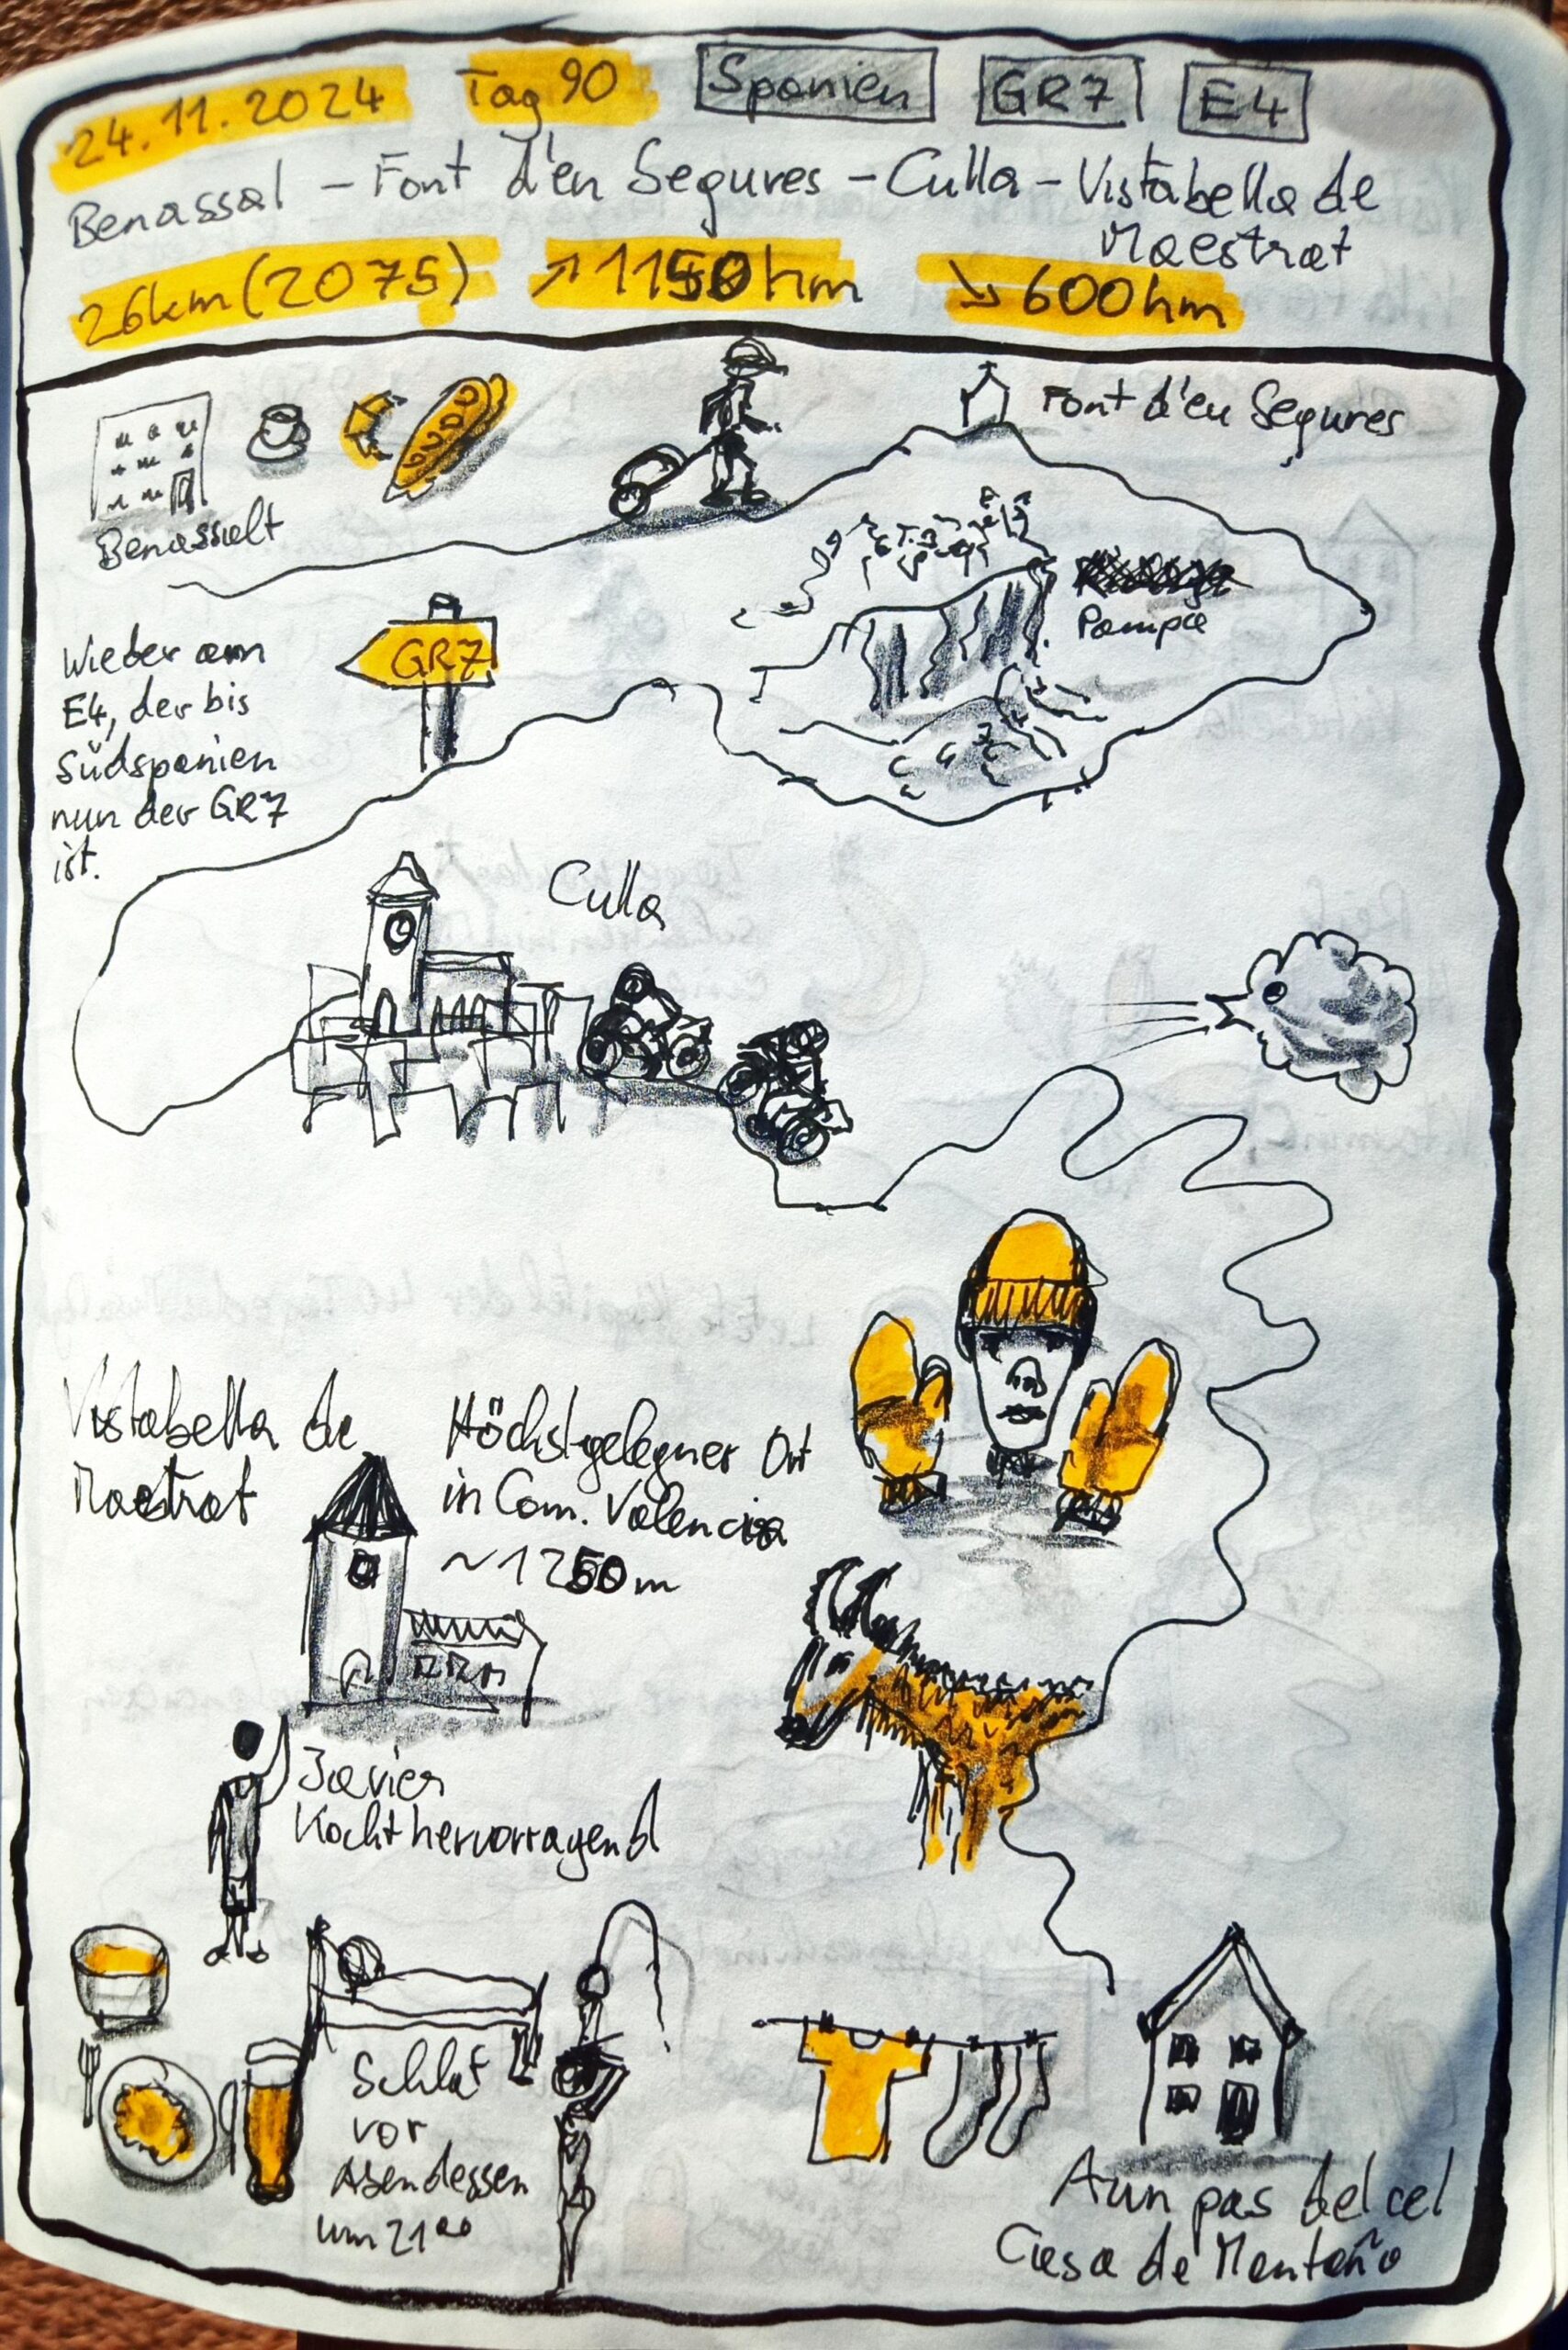 24.11.2024 Tag 90 Spanien GR7 E4
Benassal – Font d'en Segures – Culla – Vistabella de
Maestrat
26km (2075) ↗1150hm ↘600hm
Font d'en Segures
Benassalt
Pampa
Wieder am
E4, der bis
Südspanien
nun der GR7
ist.
GR7
Culla
Vistabella de
Maestrat
Höchstgelegner Ort
in Com. Valencia
~1250m
Javier
Kocht hervorragend
Schlaf
vor
Abendessen
um 21°°
A un pas del cel
Casa de Montaño